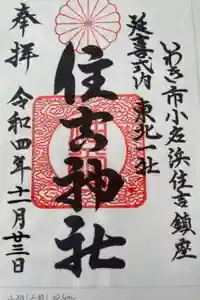 いわき市小名浜住吉鎮座
延喜式内 東北一社
住吉神社
奉拝
令和四年十一月廿三日